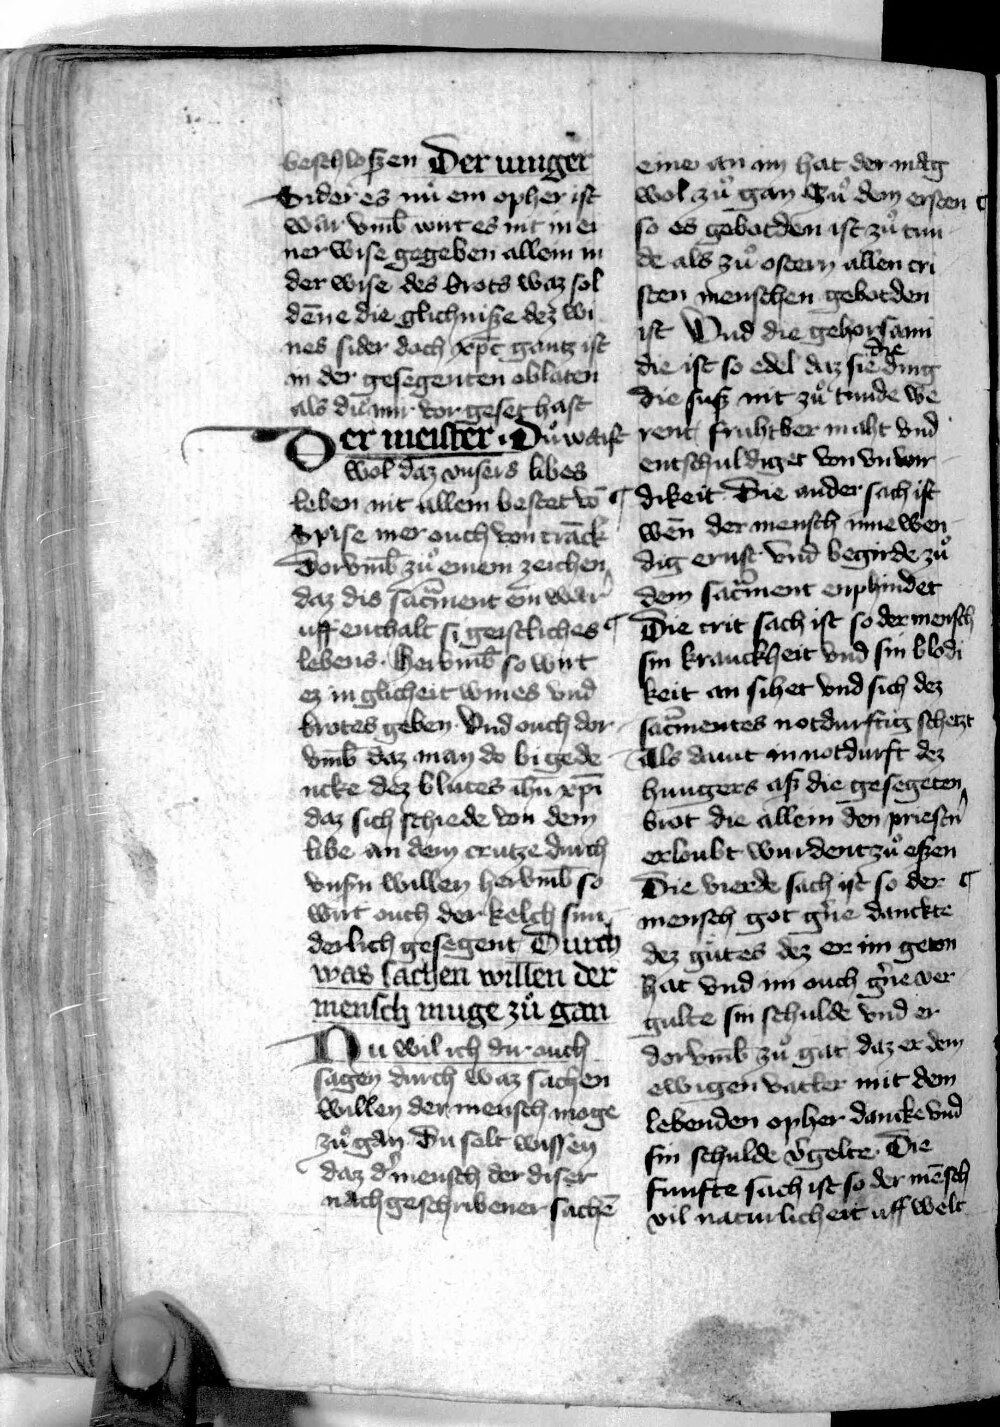 beschloßen Der iunger
Sider es nuͦ ein opher ist
war vmb̄ wirt es nit in ei
ner wise gegeben allein in
der wise des brots waz sol
dēne die glichniße dez wi
nes sider doch xp̄c gantz ist
in der gesegenten oblaten
als duͦ mir vor geset hast
Der meister · Duͦ waist
wol daz vnsers libes
leben nit allein bestet vō
Spise mer ouch von tranck
Dorvmb̄ zuͦ einem zeichen
daz dis sacͣment ein war
uff enthalt si geistliches
lebens · Hervmb̄ so wirt
ez in glicheit wines vnd
brotes geben · Vnd ouch dor
vmb̄ daz man do bi gede
ncke dez blutes ih̄u xp̄i
daz sich schiede von dem
libe an dem crutze durch
vnsn willen hervmb̄ so
wirt ouch der kelch sun
derlich gesegent Durch
was sachen willen der
mensch muge zuͦ gan
Nu wil ich dir ouch
sagen durch waz sachen
willen der mensch moge
zuͦ gan Du solt wissen
daz d' mensch der diser
nach geschribener sachē
eine an im hat der mag
wol zuͦ gan Zuͦ dem ersten ¶
so es gebotden ist zuͦ tun
de als zuͦ ostern allen cri
sten menschen gebotden
ist Vnd die gehorsami
die ist so edel daz sie die ding
die suß nit zuͦ tunde we
rent fruhtber maht vnd
entschuldiget von vnwir
¶ dikeit Die ander sach ist
wēn der mensch innewen
dig ernst vnd begirde zuͦ
dem sacͣment enphindet
¶ Die trit sach ist so der mensch
sin kranckheit vnd sin blodi
keit an sihet vnd sich dez
sacͣmentes notdurftig schetzt
Als dauit in notdurft dez
hungers aß die gesegeten
brot die allein den priestn
erloubt wurdent zuͦ eßen
Die vierde sach ist so der ¶
mensch got g'ne danckte
dez gutes dez er im geton
hat vnd im ouch g'ne ver
gulte sin schulde vnd er
dorvmb̄ zuͦ gat daz er dem
ewigen vatter mit dem
lebenden opher dancke vnd
sin schulde v'gelte · Die
funfte sach ist so der mēsch
vil naturlicheit uff welt